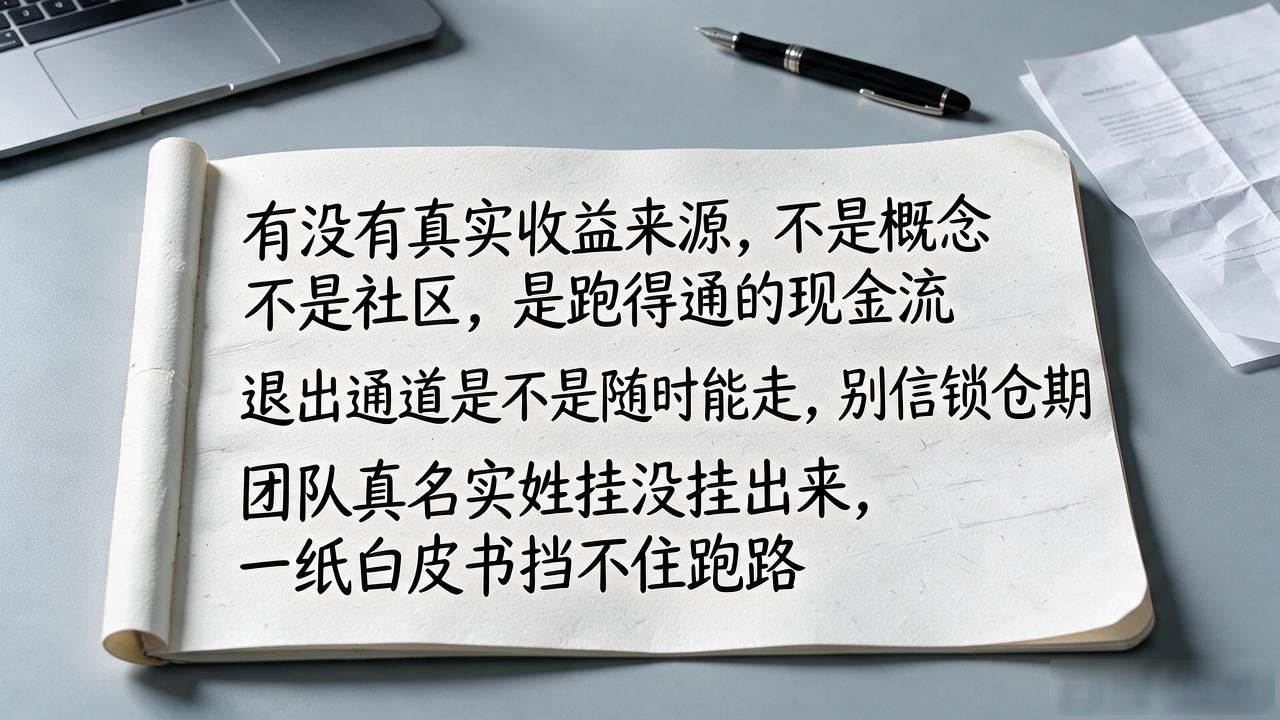 有没有真实收益来源，不是概念
不是社区，是跑得通的现金流
退出通道是不是随时能走，别信锁仓期
团队真名实姓挂没挂出来，
一纸白皮书挡不住跑路